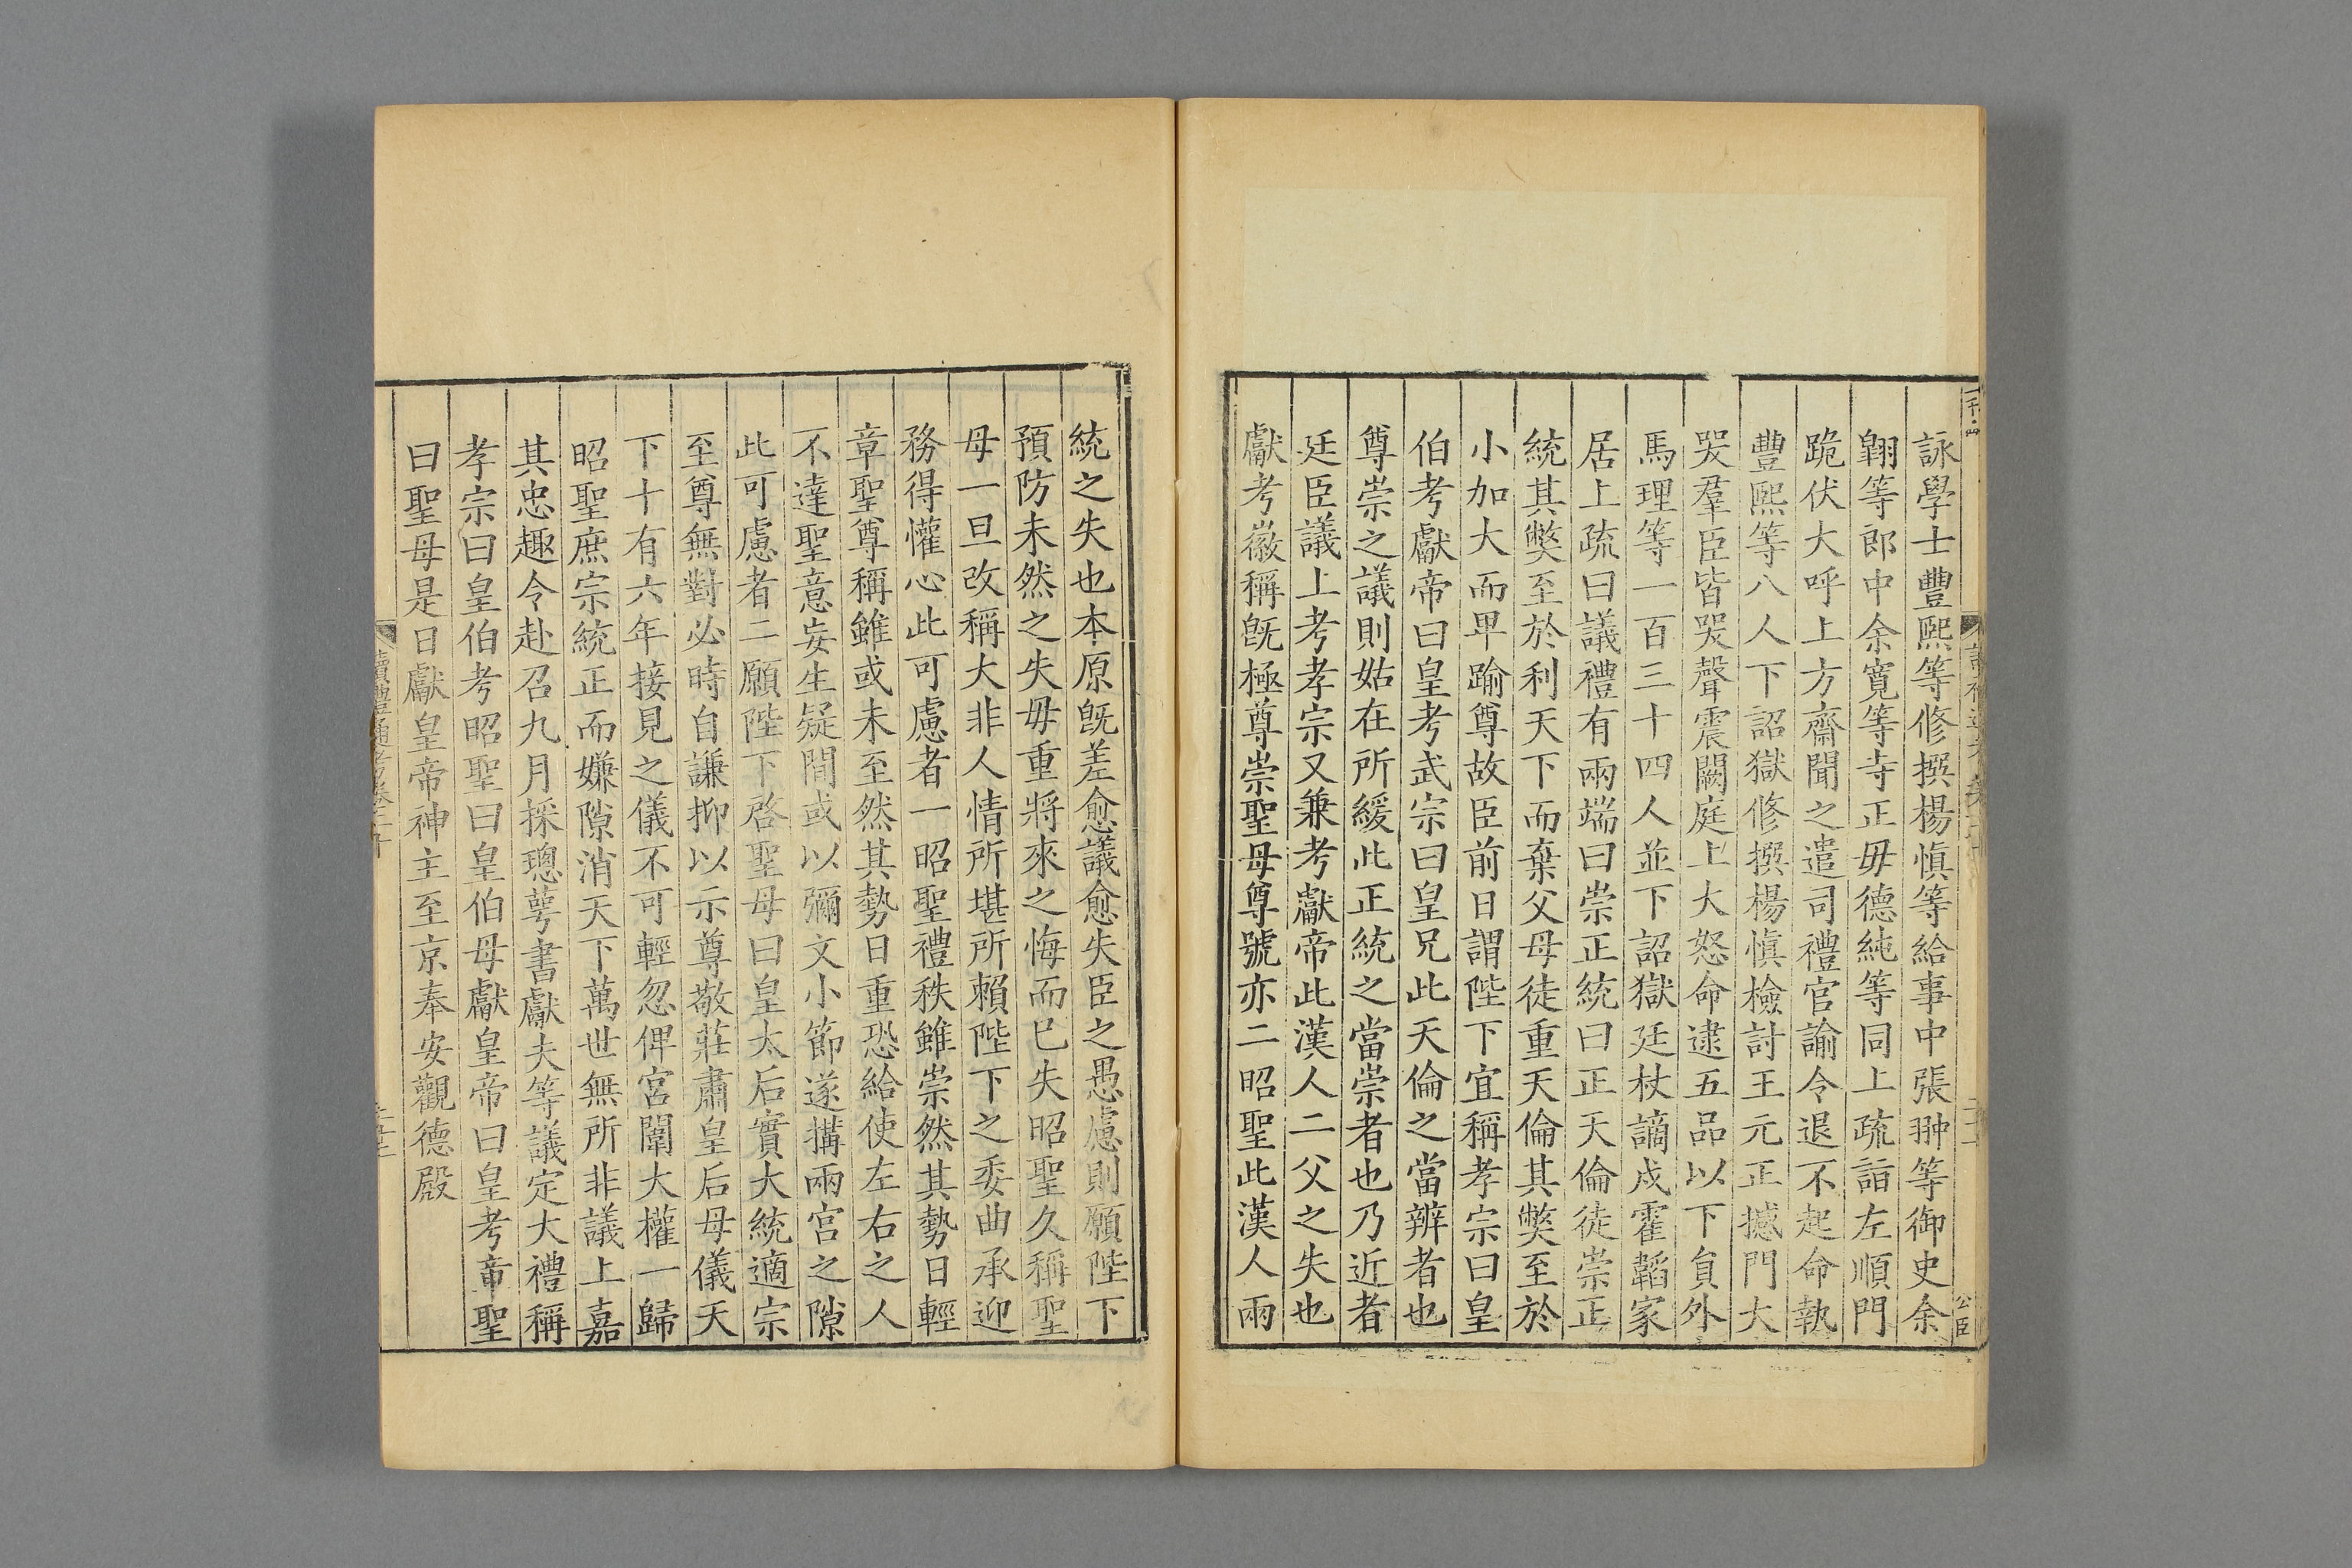 詠學士豐熙等修撰楊慎等給事中張翀等御史余
翺等郎中余寬等寺正毋德純等同上疏詣左順門
跪伏大呼上方齋聞之遣司禮官諭令退不起命執
豐熙等八人下詔獄修撰楊慎檢討王元正撼門大
哭羣臣皆哭聲震闕庭上大怒命逮五品以下負外
馬理等一百三十四人並下詔獄廷杖謫戍霍韜家
居上疏曰議禮有兩端曰崇正統曰正天倫徒崇正
統其弊至於利天下而棄父母徒重天倫其弊至於
小加大而卑踰尊故臣前日謂陛下宜稱孝宗曰皇
伯考獻帝曰皇考武宗曰皇兄此天倫之當辨者也
尊崇之議則姑在所緩此正統之當崇者也乃近者
廷臣議上考孝宗又兼考獻帝此漢人二父之失也
獻考徽稱旣極尊崇聖母尊號亦二昭聖此漢人兩
統之失也本原旣差愈議愈失臣之愚慮則願陛下
預防未然之失毋重將來之悔而已失昭聖久稱聖
母一旦改稱大非人情所堪所賴陛下之委曲承迎
務得懽心此可慮者一昭聖禮秩雖崇然其勢日輕
章聖尊稱雖或未至然其勢日重恐給使左右之人
不達聖意妄生疑間或以彌文小節遂搆兩宮之隙
此可慮者二願陛下啓聖母曰皇太后實大統適宗
至尊無對必時自謙抑以示尊敬莊肅皇后母儀天
下十有六年接見之儀不可輕忽俾宮闈大權一歸
昭聖庶宗統正而嫌隙消天下萬世無所非議上嘉
其忠趣令赴召九月採璁萼書獻夫等議定大禮稱
孝宗曰皇伯考昭聖曰皇伯母獻皇帝曰皇考章聖
曰聖母是日獻皇帝神主至京奉安觀德殿
讀禮通考卷二十